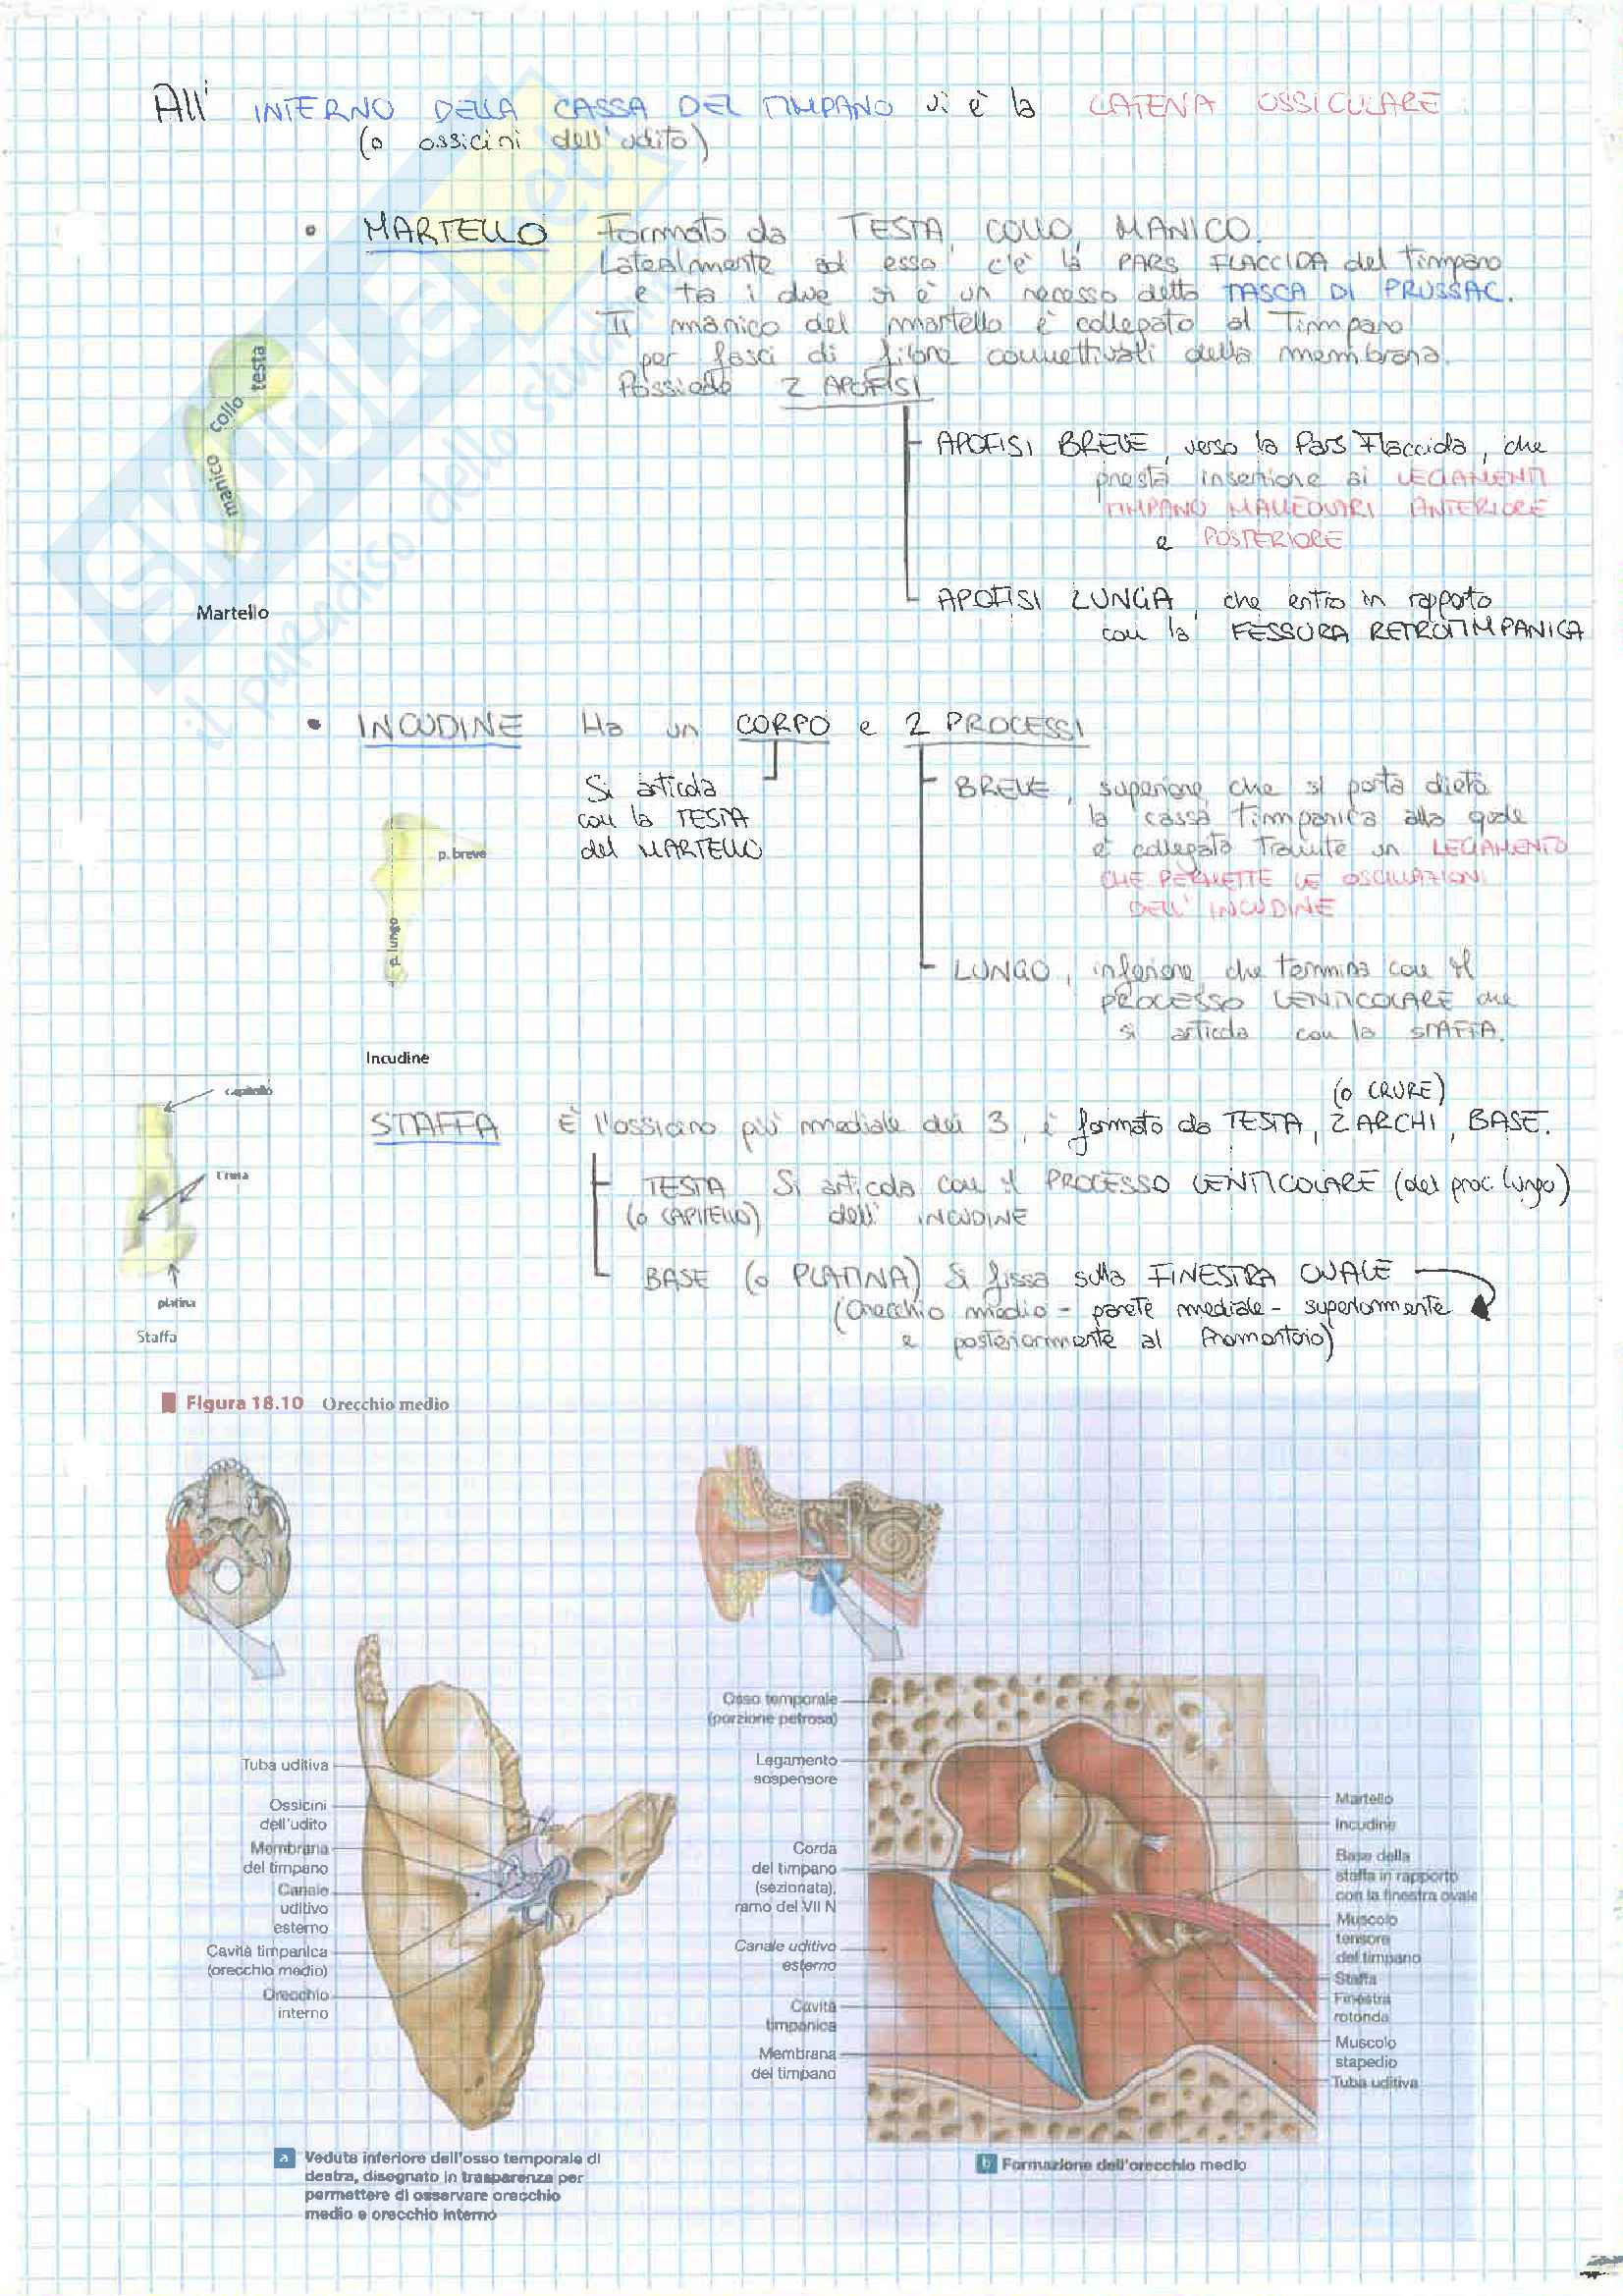 All' INTERNO DELLA CASSA DEL TIMPANO vi è la CATENA OSSICULARE.
(o ossicini dell'udito)
• MARTELLO Formato da TESTA, COLLO, MANICO.
Lateralmente ad esso c'è la PARS FLACCIDA del Timpano
e tra i due vi è un recesso detto TASCA DI PRUSSAC.
Il manico del martello è collegato al Timpano
per fasci di fibre connettivali della membrana.
Possiede 2 APOFISI
testa
collo
manico
Martello
APOFISI BREVE, verso la Pars Flaccida, che
presta inserzione ai LEGAMENTI
TIMPANO MALLEOLARI ANTERIORE
e POSTERIORE
APOFISI LUNGA, che entra in rapporto
con la FESSURA RETROTIMPANICA
• INCUDINE Ha un CORPO e 2 PROCESSI
Si articola
con la TESTA
del MARTELLO
BREVE, superiore, che si porta dietro
la cassa timpanica alla quale
è collegato tramite un LEGAMENTO
CHE PERMETTE LE OSCILLAZIONI
DELL'INCUDINE
LUNGO, inferiore, che termina con il
PROCESSO LENTICOLARE che
si articola con la STAFFA.
p. breve
p. lungo
Incudine
(o CRURE)
STAFFA È l'ossicino più mediale dei 3, è formato da TESTA, 2 ARCHI, BASE.
TESTA Si articola con il PROCESSO LENTICOLARE (del proc. lungo)
(o CAPITELLO) dell' INCUDINE
BASE (o PLATINA) Si fissa sulla FINESTRA OVALE
(Orecchio medio - parete mediale - superiormente
e posteriormente al Promontorio)
capitello
Crura
platina
Staffa
Figura 18.10 Orecchio medio
Tuba uditiva
Ossicini
dell'udito
Membrana
del timpano
Canale
uditivo
esterno
Cavità timpanica
(orecchio medio)
Orecchio
interno
Osso temporale
(porzione petrosa)
Legamento
sospensore
Corda
del timpano
(sezionata),
ramo del VII N
Canale uditivo
esterno
Cavità
timpanica
Membrana
del timpano
Martello
Incudine
Base della
staffa in rapporto
con la finestra ovale
Muscolo
tensore
del timpano
Staffa
Finestra
rotonda
Muscolo
stapedio
Tuba uditiva
a Veduta inferiore dell'osso temporale di
destra, disegnato in trasparenza per
permettere di osservare orecchio
medio e orecchio interno
b Formazione dell'orecchio medio
SKUOLA.net
il paradiso dello studente